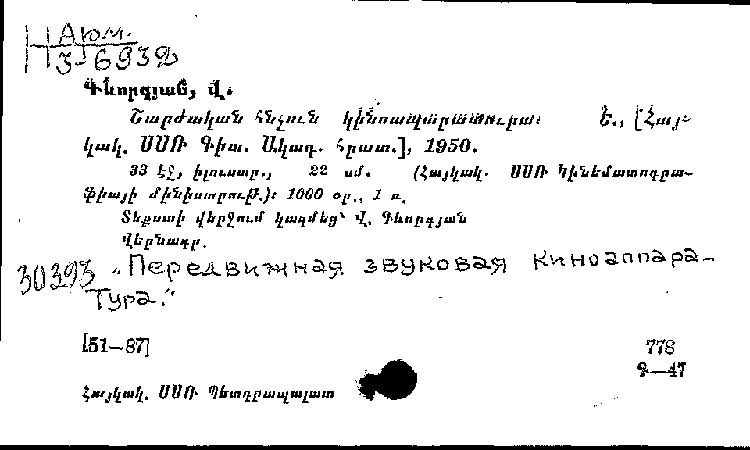 Аюм.
3-6932
Գևորգյան, Վ.
Շարժական հնչուն կինոապարատուրա: Ե., [Հայ-
կակ. ՍՍՌ Գիտ. Ակադ. հրատ.], 1950.
33 էջ, իլուստր., 22 սմ. (Հայկակ. ՍՍՌ Կինեմատոգրա-
ֆիայի մինիստրութ.): 1000 օր., 1 ռ.
Տեքստի վերջում կազմեց՝ Վ. Գևորգյան
Վերնագր.
30393 „Передвижная звуковая киноаппара-
тура."
[51—87] 778
Գ—47
Հայկակ. ՍՍՌ Պետգրապալատ